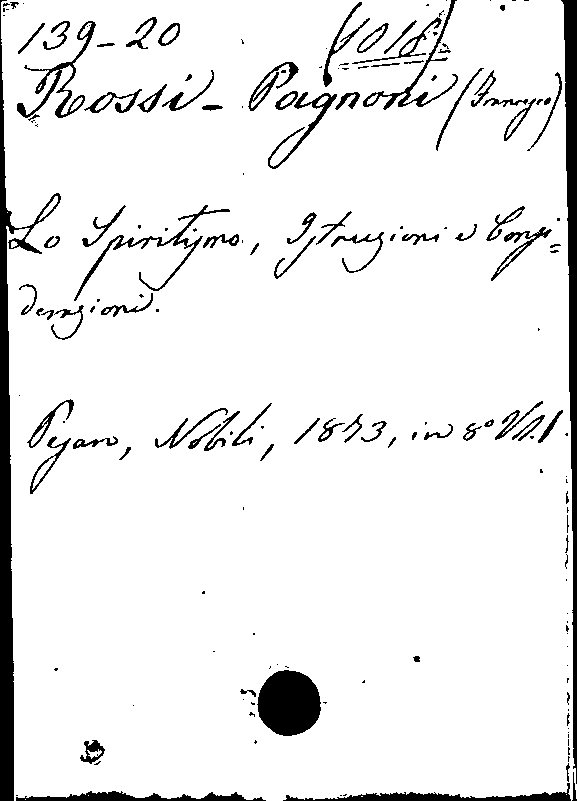 139-20 (1018)
Rossi-Pagnoni (Francesco)
Lo Spiritismo, Istruzioni e Consi=
derazioni.
Pesaro, Nobili, 1873, in 8° Vol. 1.